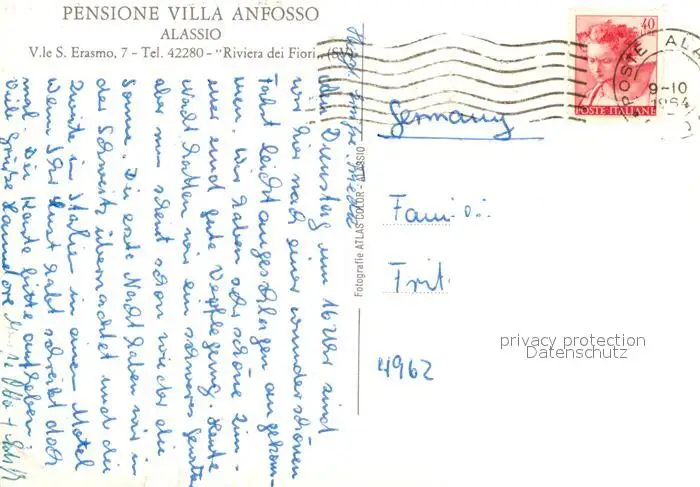 PENSIONE VILLA ANFOSSO
ALASSIO
V.le S. Erasmo, 7 - Tel. 42280 - "Riviera dei Fiori" (SV)
Dienstag um 16 Uhr sind
wir hier nach einer wunderschönen
Fahrt leicht angeschlagen angekom-
men. Wir haben sehr schöne Zim-
mer und gute Verpflegung. Heute
Nacht hatten wir ein schweres Gewitter
aber nun scheint schon wieder die
Sonne. Die erste Nacht haben wir in
der Schweiz übernachtet und die
Zweite in Italien in einem Motel
Wenn Ihr Lust habt schreibt doch
mal. Die Karte bitte aufheben.
Viele Grüße Hannelore
Fotografie ATLAS COLOR - ALASSIO
40
POSTE ITALIANE
POSTE ALA
9-10
1964
Germany
Fami
Frit
4962
privacy protection
Datenschutz